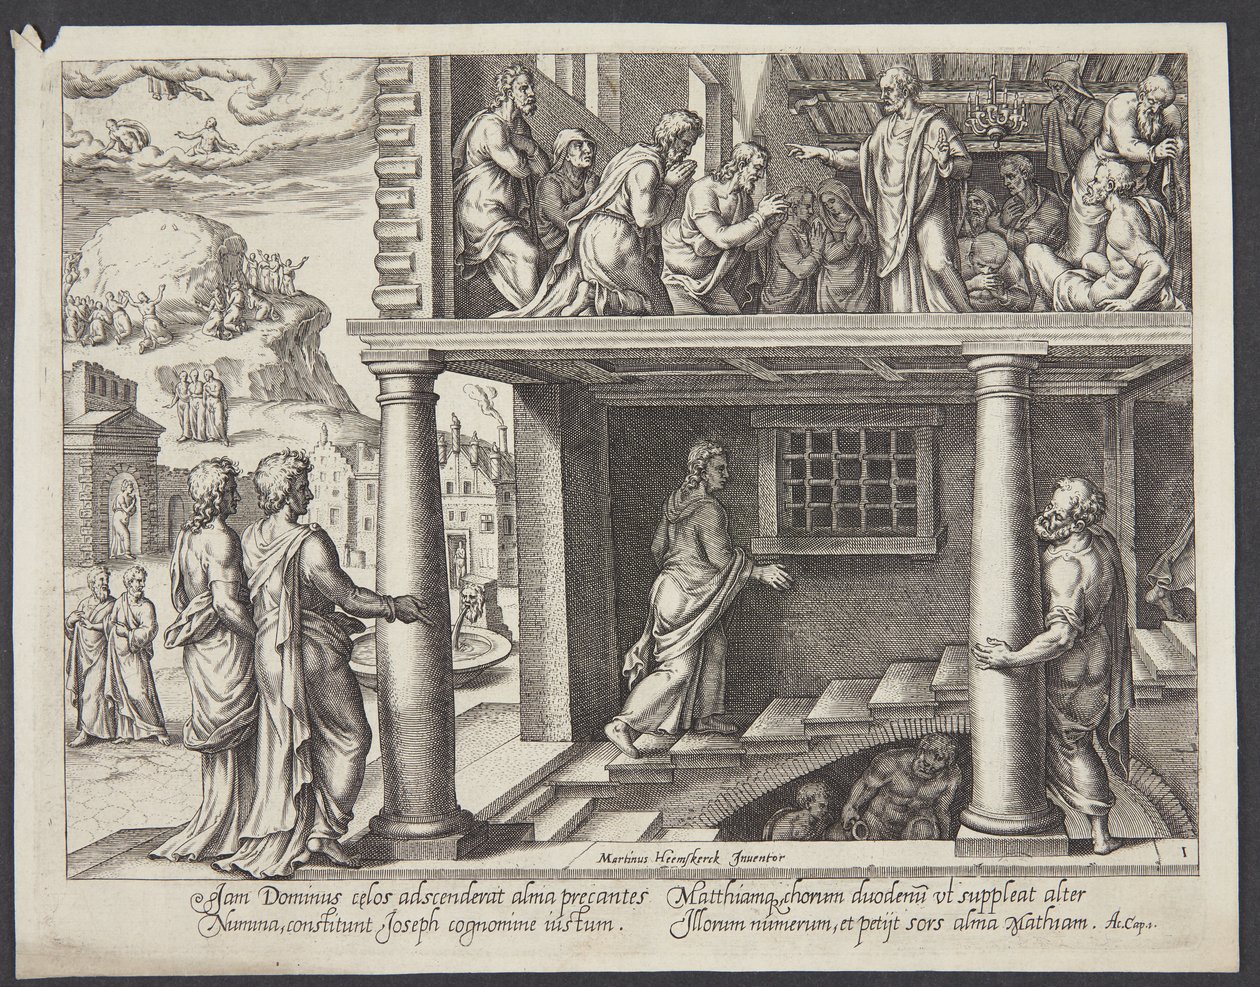 Martinus Heemskerck Inuentor
1
Iam Dominus cęlos adscenderat alma precantes
Numina, constitunt Joseph cognomine iustum.
Matthiamq, chorum duodenū vt suppleat alter
Illorum numerum, et petijt sors alma Mathiam. Ac. Cap. 1.